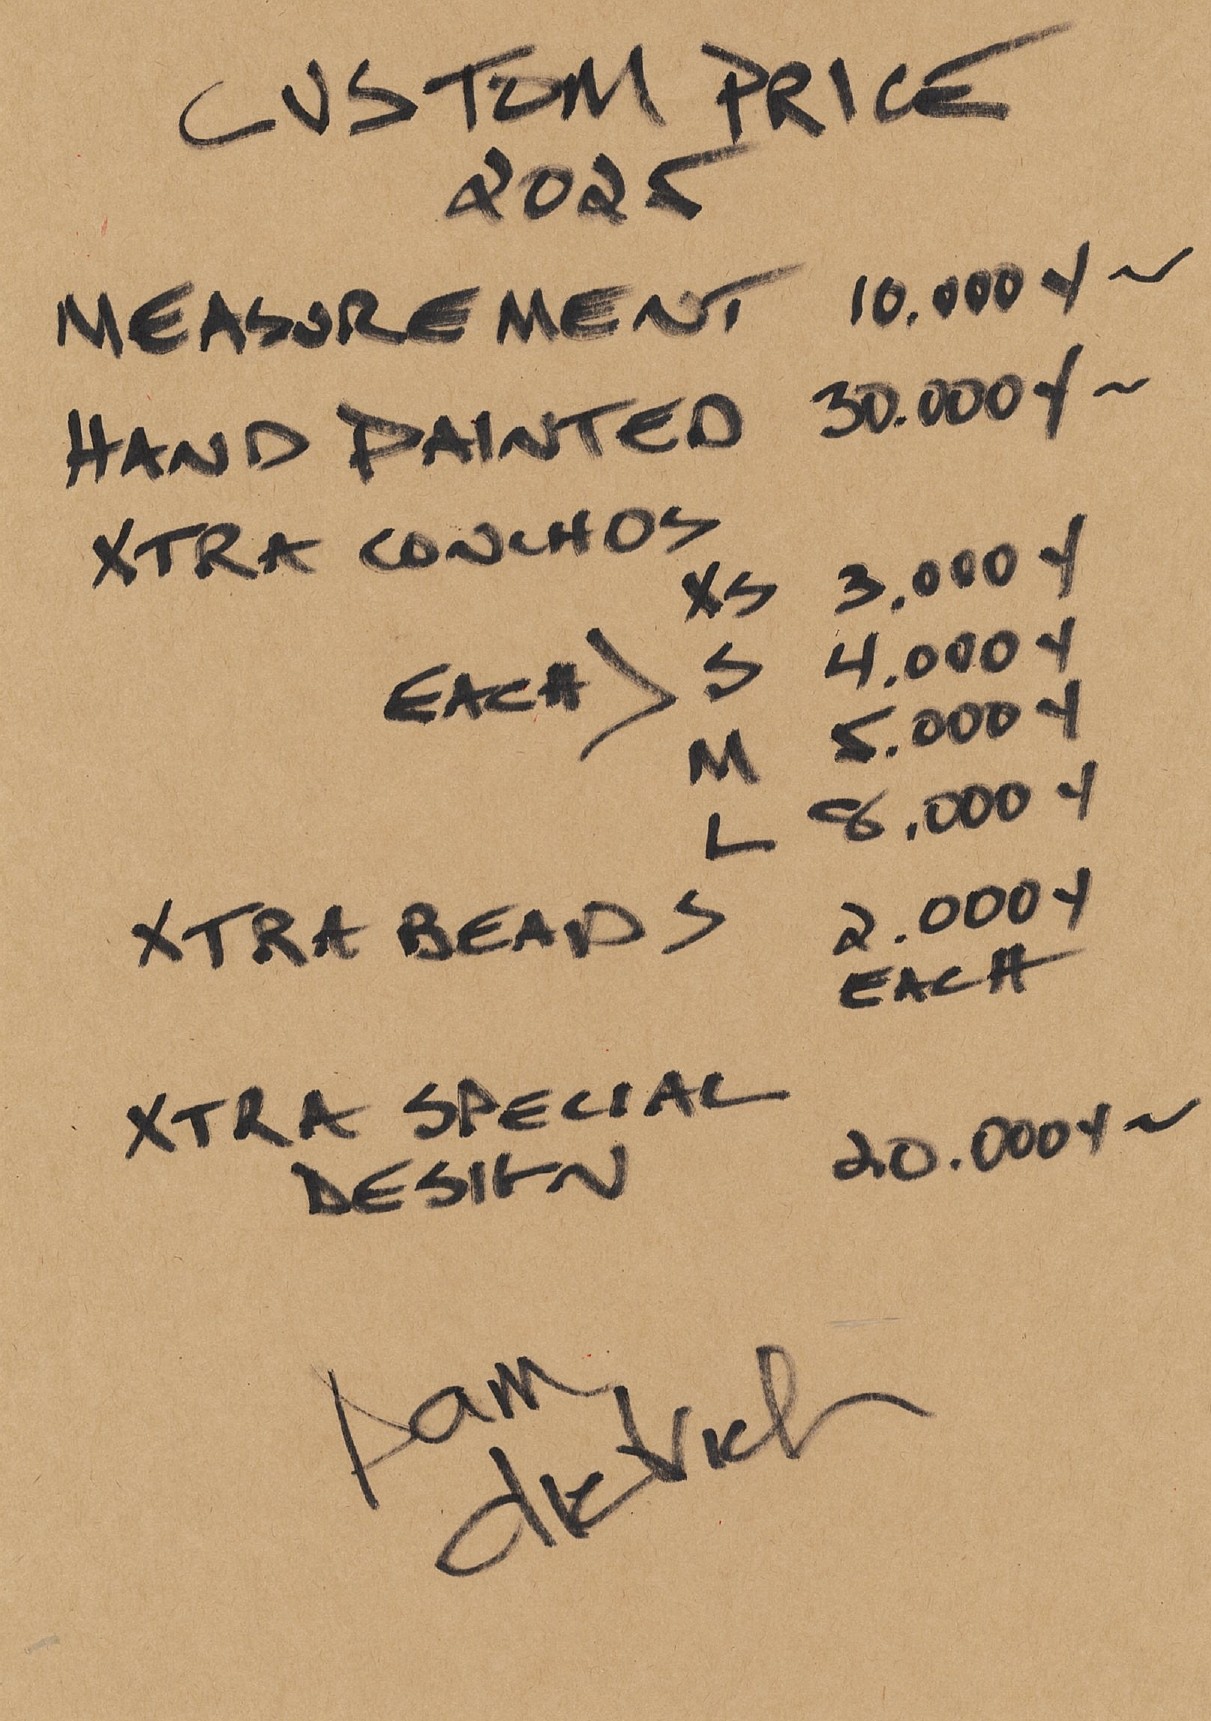 CUSTOM PRICE
2025
MEASUREMENT 10.000Y~
HAND PAINTED 30.000Y~
XTRA CONCHOS
XS 3.000Y
EACH > S 4.000Y
M 5.000Y
L 8.000Y
XTRA BEADS 2.000Y
EACH
XTRA SPECIAL
DESIGN 20.000Y~